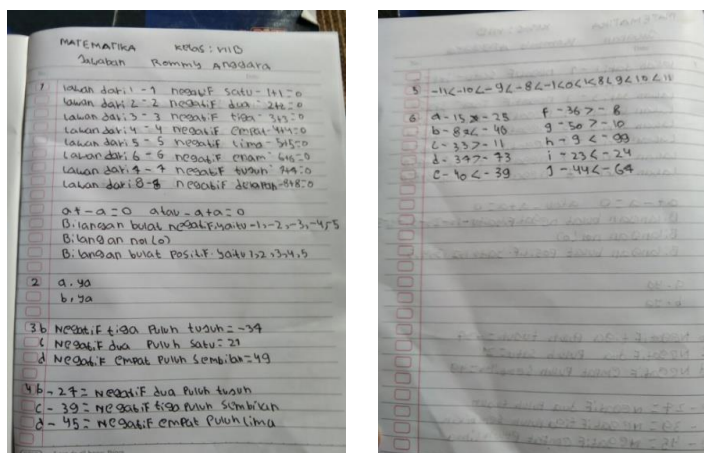 MATEMATIKA Kelas: VIIB
Jawaban Rommy Anggara
1 Lawan dari 1 - 1 negatif satu - 1+1=0
Lawan dari 2 - 2 negatif dua - 2+2=0
Lawan dari 3 - 3 negatif tiga - 3+3=0
Lawan dari 4 - 4 negatif empat - 4+4=0
Lawan dari 5 - 5 negatif lima - 5+5=0
Lawan dari 6 - 6 negatif enam - 6+6=0
Lawan dari 7 - 7 negatif tujuh - 7+7=0
Lawan dari 8 - 8 negatif delapan - 8+8=0
a+-a=0 atau -a+a=0
Bilangan bulat negatif yaitu -1,-2,-3,-4,-5
Bilangan nol (0)
Bilangan bulat positif yaitu 1,2,3,4,5
2 a. ya
b, ya
3 b Negatif tiga puluh tujuh = -37
c Negatif dua puluh satu = 21
d Negatif empat puluh sembilan = 49
4 b - 27 = Negatif dua puluh tujuh
c - 39 = Negatif tiga puluh sembilan
d - 45 = Negatif empat puluh lima
5 -11<-10<-9<-8<-1<0<1<8<9<10<11
6 a -15 > -25 f - 36 > - 8
g - 50 > - 10
c - 33 > - 11 h - 9 < - 99
d - 37 > - 73 i - 23 < - 24
e - 40 < - 39 j - 44 < - 64